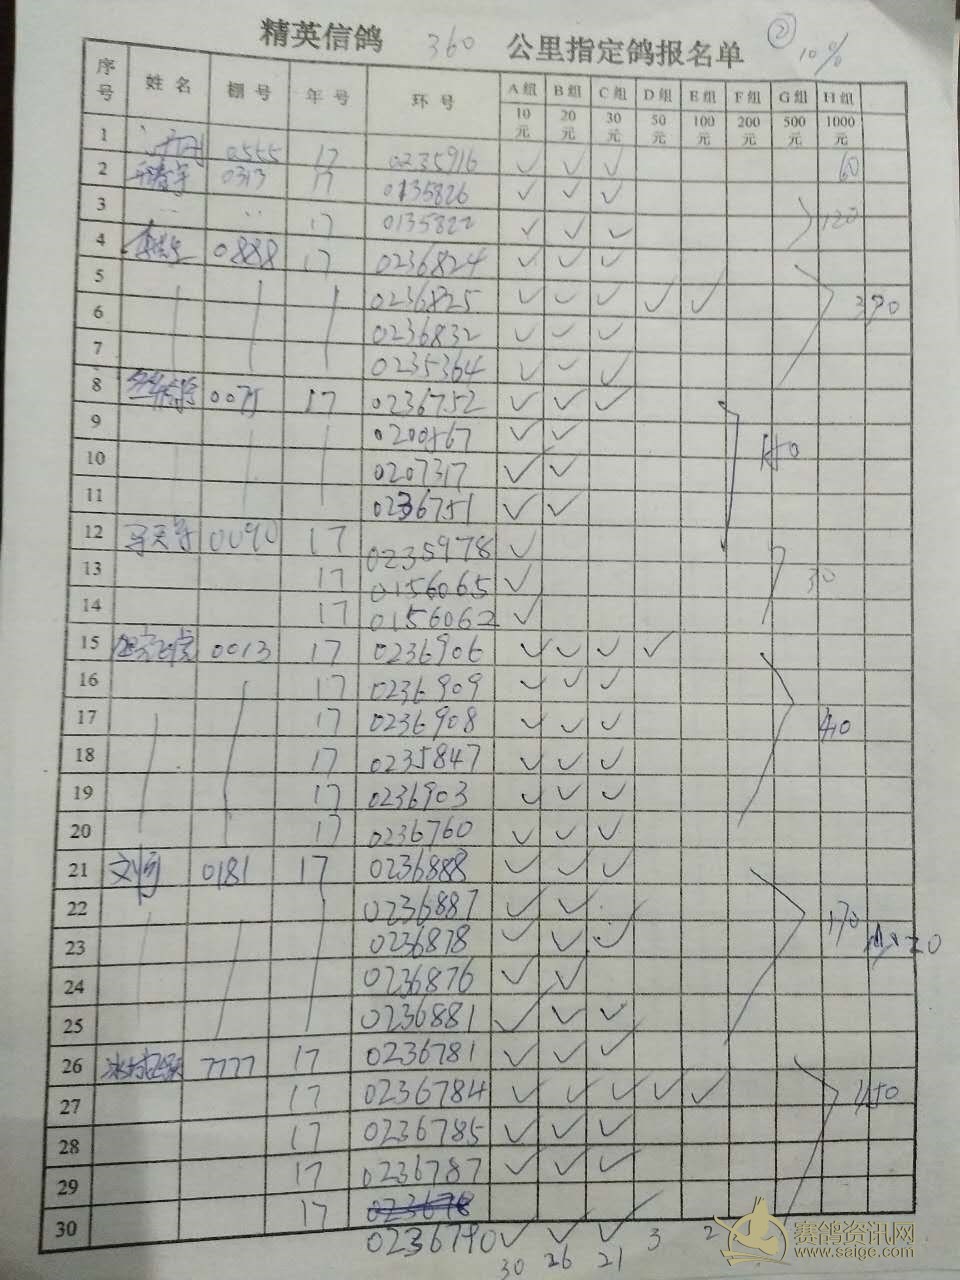 精英信鸽 360 公里指定鸽报名单 ② 10%
序号 姓名 棚号 年号 环号 A组 B组 C组 D组 E组 F组 G组 H组
10元 20元 30元 50元 100元 200元 500元 1000元
1 0555 17 0235916 ✓ ✓ ✓ 60
2 0313 17 0135826 ✓ ✓ ✓
3 17 0135822 ✓ ✓ ✓ 120
4 0888 17 0236824 ✓ ✓ ✓
5 0236825 ✓ ✓ ✓ ✓ ✓ 390
6 0236832 ✓ ✓ ✓
7 0235364 ✓ ✓ ✓
8 0075 17 0236752 ✓ ✓ ✓
9 0200867 ✓ ✓
10 0207317 ✓ ✓
11 0236751 ✓ ✓
12 0090 17 0235978 ✓
13 17 0156065 ✓ 30
14 17 0156062 ✓
15 0013 17 0236906 ✓ ✓ ✓ ✓
16 17 0236909 ✓ ✓ ✓
17 17 0236908 ✓ ✓ ✓ 410
18 17 0235847 ✓ ✓ ✓
19 17 0236903 ✓ ✓ ✓
20 17 0236760 ✓ ✓ ✓
21 0181 17 0236888 ✓ ✓ ✓
22 0236887 ✓ ✓
23 0236878 ✓ ✓ ✓
24 0236876 ✓ ✓
25 0236881 ✓ ✓ ✓
26 7777 17 0236781 ✓ ✓ ✓
27 17 0236784 ✓ ✓ ✓ ✓ ✓ 450
28 17 0236785 ✓ ✓ ✓
29 17 0236787 ✓ ✓ ✓
30 17 0236790 ✓ ✓ ✓
30 26 21 3 2
赛鸽资讯网
www.saigc.com